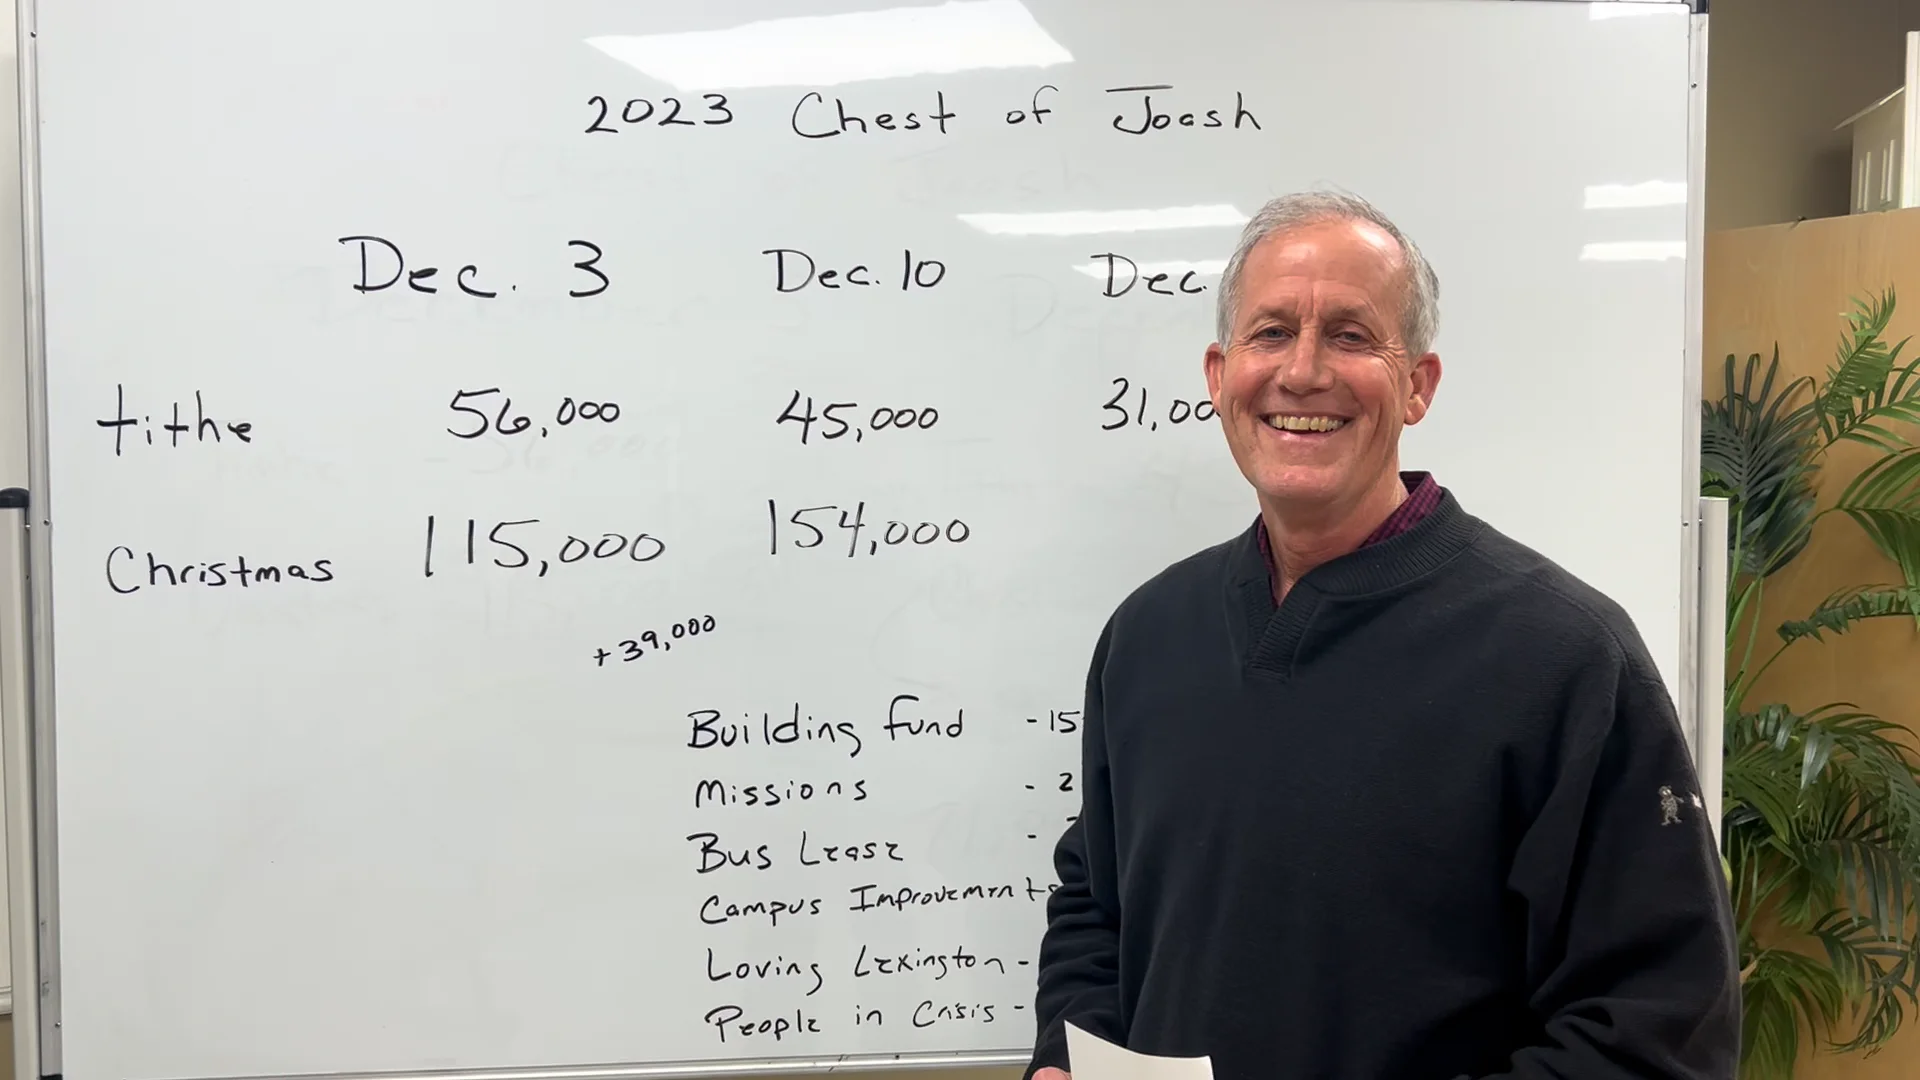 2023 Chest of Joash
Dec. 3 Dec. 10 Dec.
tithe 56,000 45,000 31,00
Christmas 115,000 154,000
+39,000
Building fund - 15
Missions - 2
Bus Lease -
Campus Improvements
Loving Lexington -
People in Crisis -